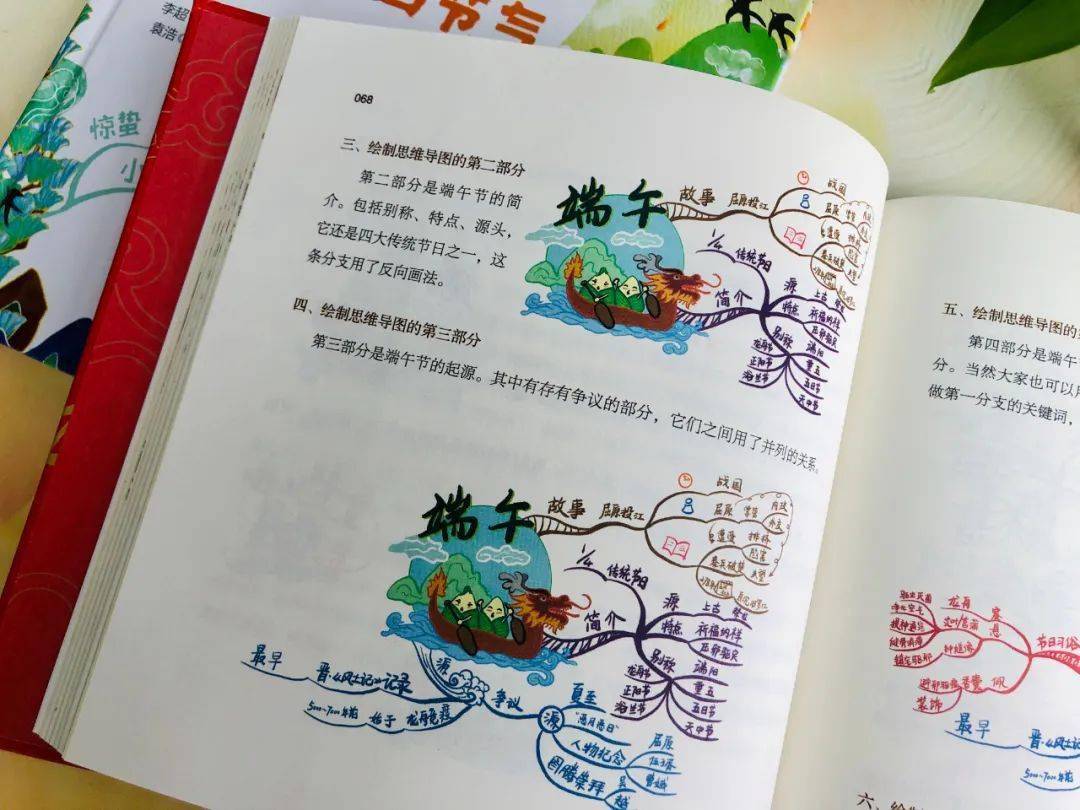 李超
袁浩
节气
惊蛰
小
068
三、绘制思维导图的第二部分
第二部分是端午节的简
介。包括别称、特点、源头，
它还是四大传统节日之一，这
条分支用了反向画法。
端午
故事
屈原投江
战国
屈原
遭遇
1/4
传统节日
简介
源
上古
特点
祈福纳祥
压邪驱灾
别称
端阳
重五
五日节
天中节
龙舟节
正阳节
浴兰节
四、绘制思维导图的第三部分
第三部分是端午节的起源。其中有存有争议的部分，它们之间用了并列的关系。
端午
故事
屈原投江
战国
屈原
遭遇
排挤
秦兵破楚
1/4
传统节日
简介
源
上古
特点
祈福纳祥
压邪驱灾
别称
端阳
重五
五日节
天中节
龙舟节
正阳节
浴兰节
源
最早
晋·《风土记》记录
5000~7000年前
始于
争议
源
夏至
"恶月恶日"
人物纪念
屈原
伍子胥
曹娥
图腾崇拜
吴
越
五、绘制思维导图的
第四部分是端午
分。当然大家也可以
做第一分支的关键词，
节日习俗
龙舟
赛
钟馗像
佩
装饰
最早
晋·《风土记》
5000~7000年前
六、绘